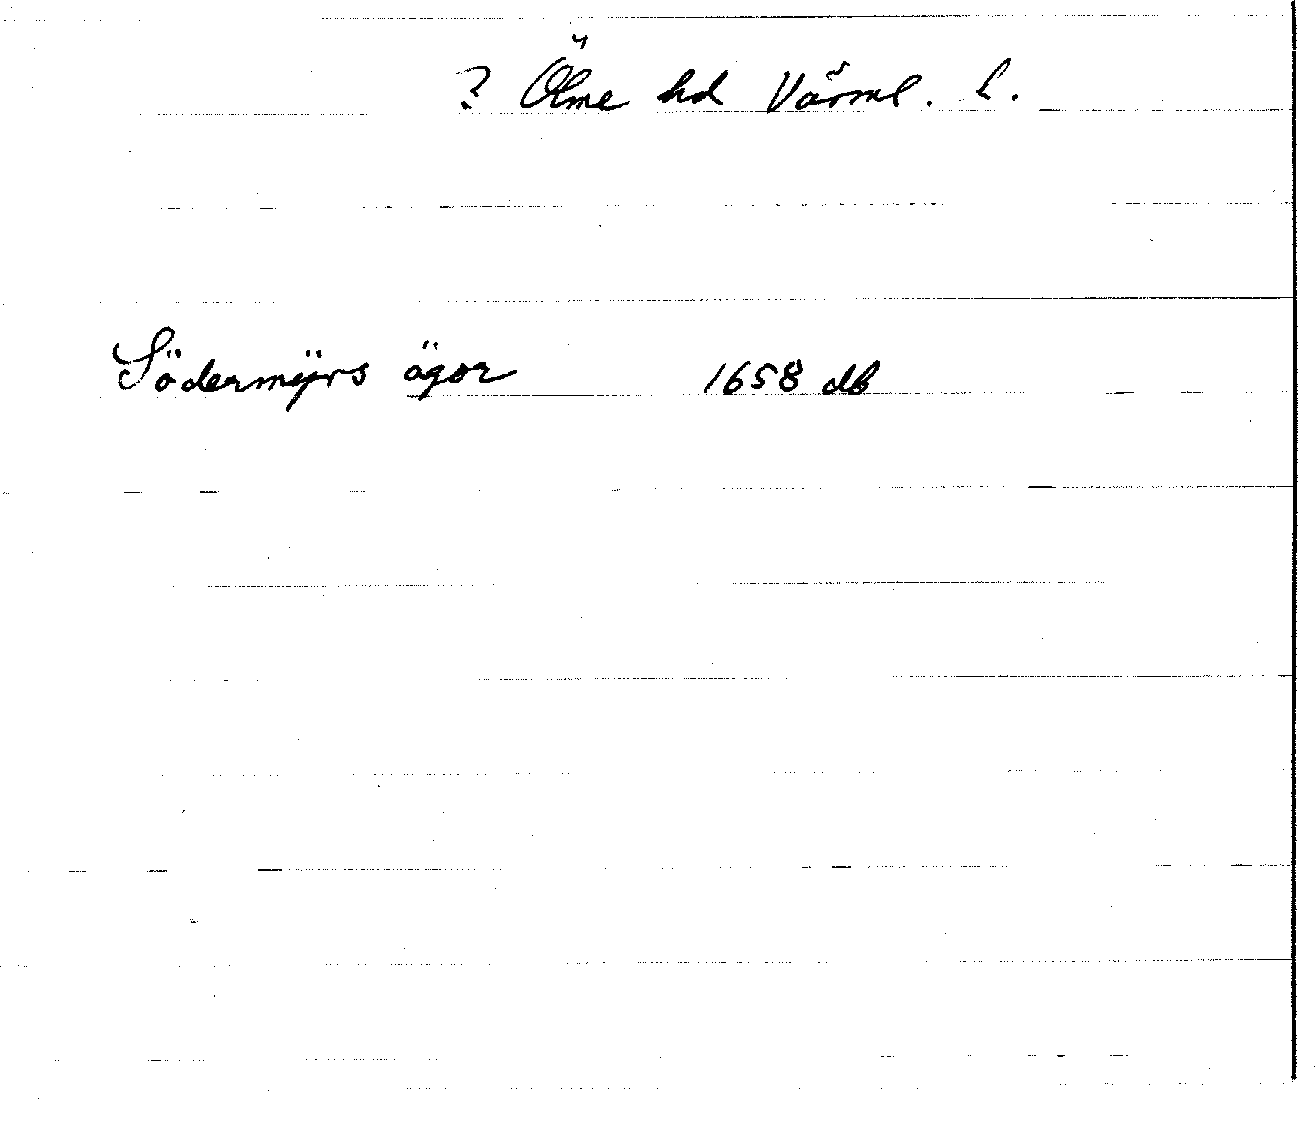 ? Ölme hd Värml. l.
Södermÿrs ägor 1658 db